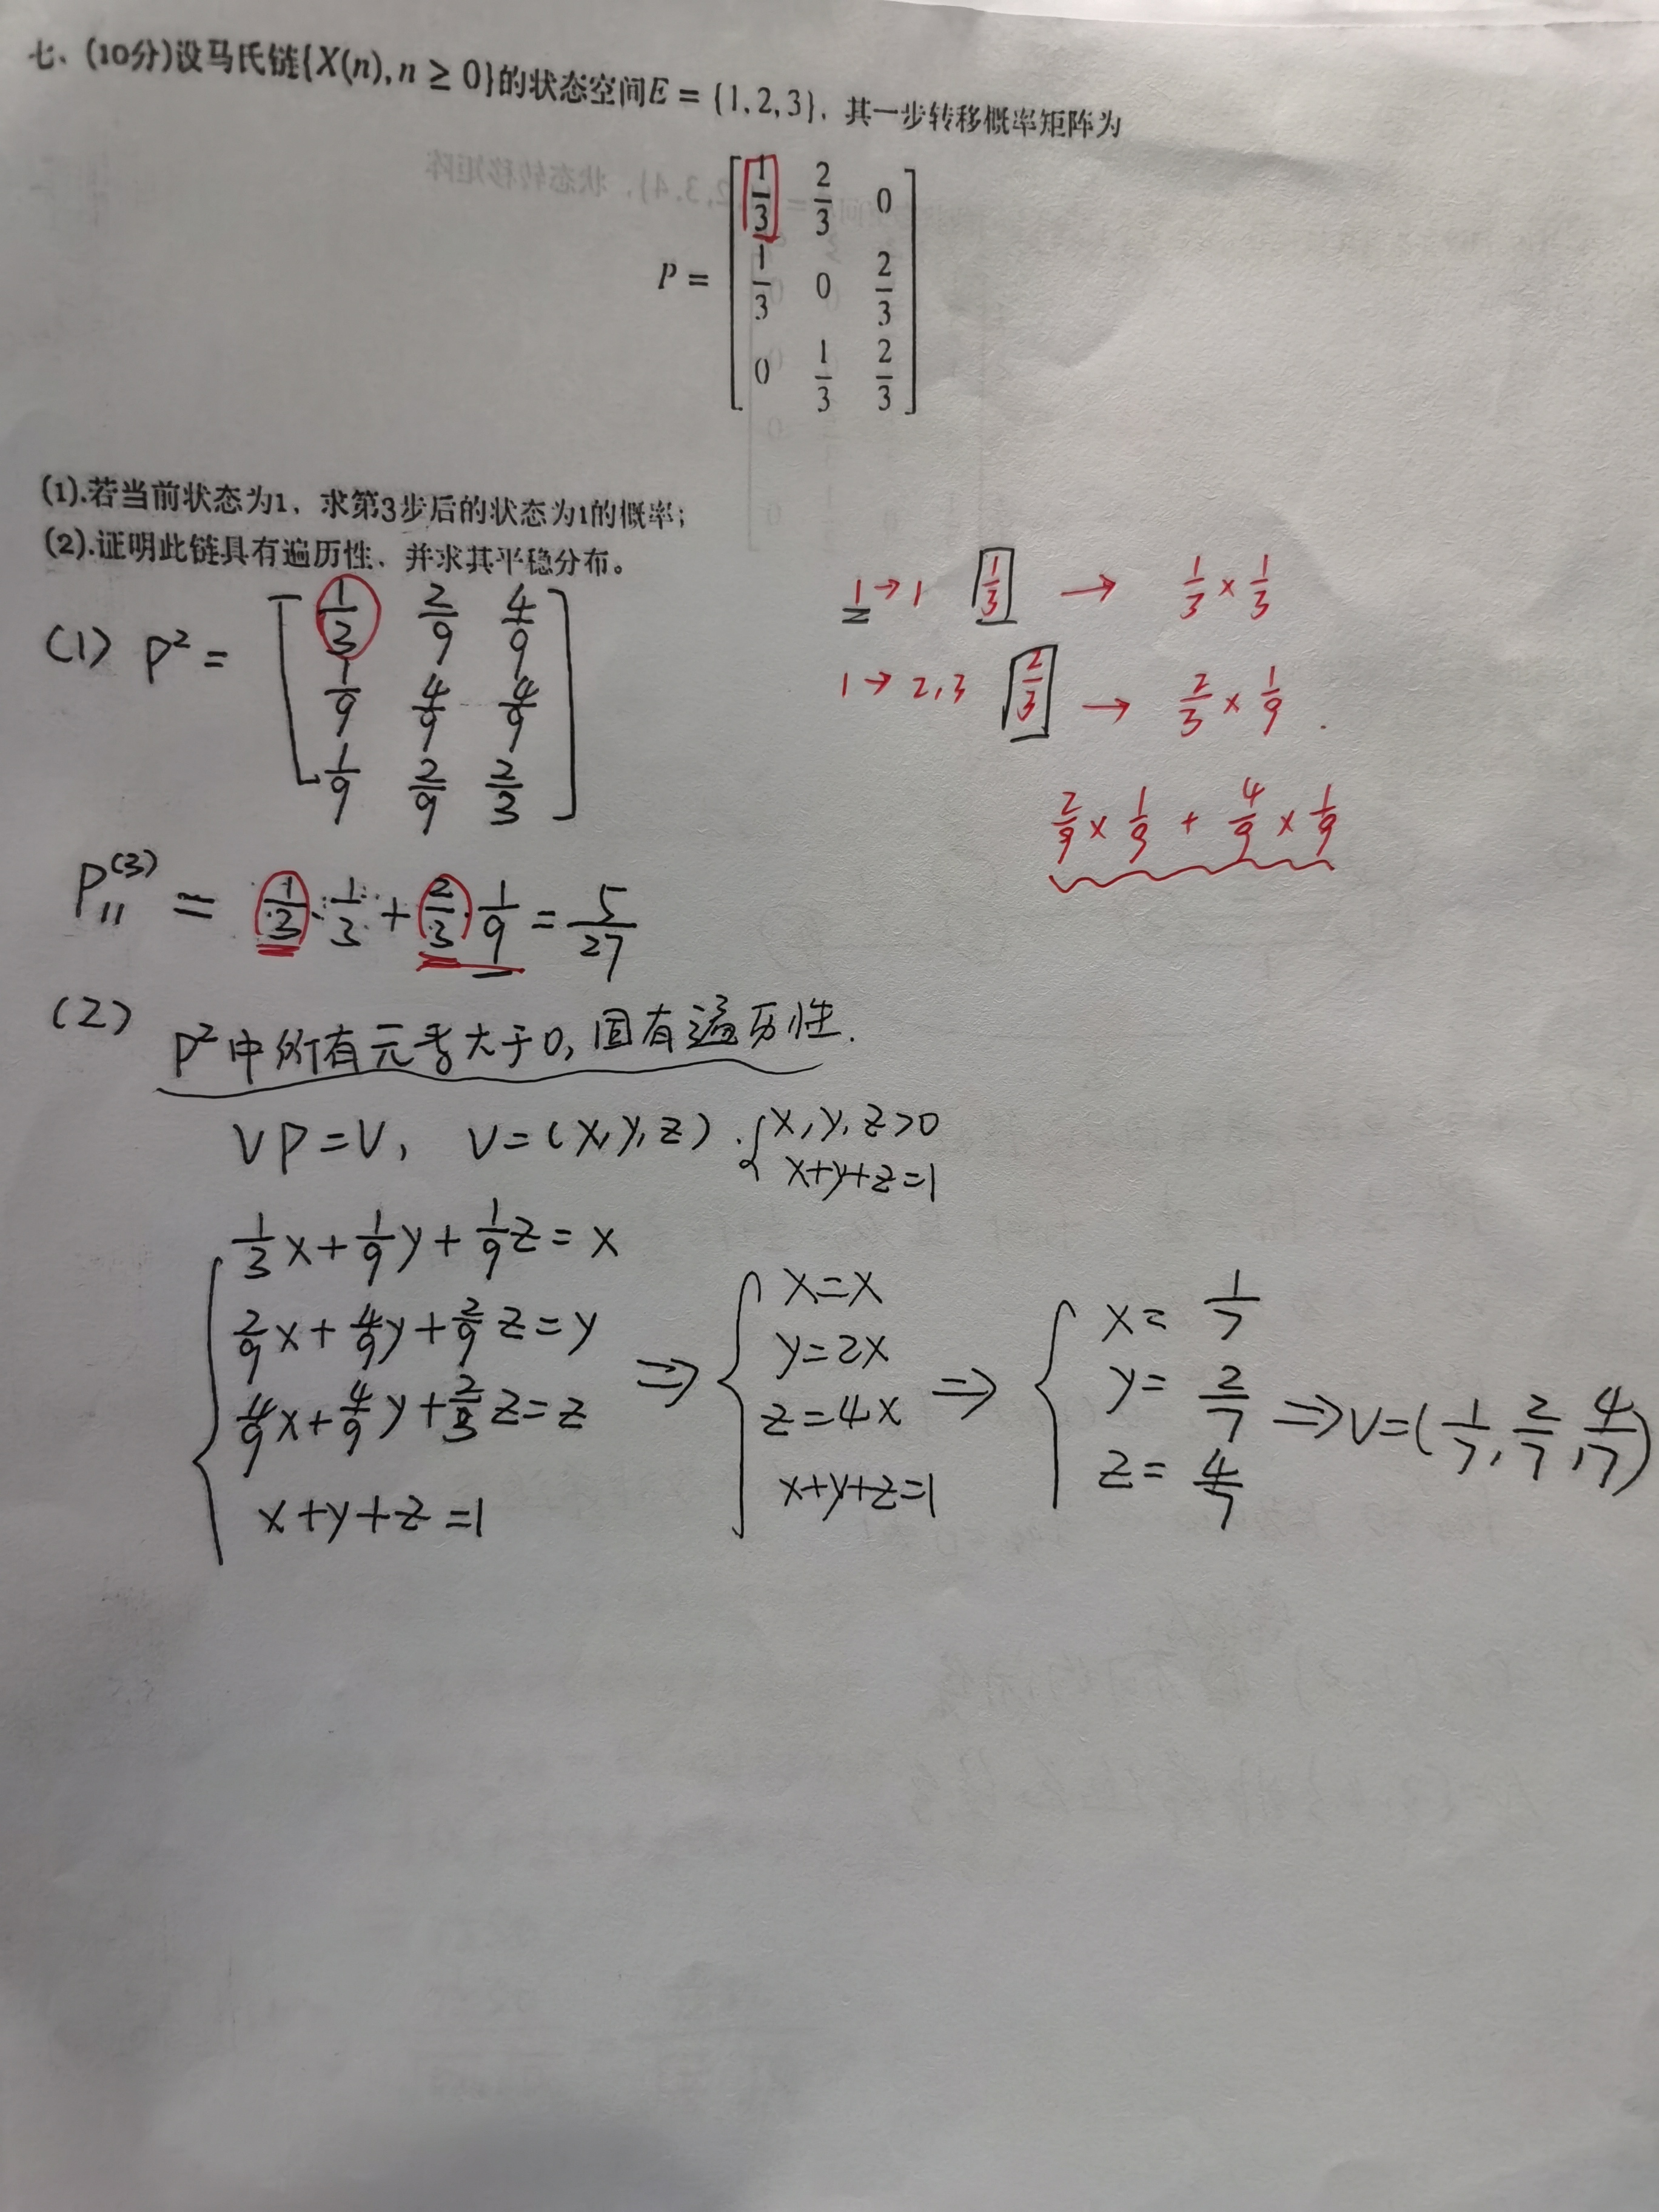 七、(10分)设马氏链{X(n), n ≥ 0}的状态空间E = {1, 2, 3}, 其一步转移概率矩阵为
P = [1/3 2/3 0
1/3 0 2/3
0 1/3 2/3]
(1).若当前状态为1, 求第3步后的状态为1的概率;
(2).证明此链具有遍历性、并求其平稳分布。
(1) P² = [1/3 2/9 4/9
1/9 4/9 4/9
1/9 2/9 2/3]
1 → 1 1/3 → 1/3 × 1/3
1 → 2,3 2/3 → 2/3 × 1/9
2/9 × 1/9 + 4/9 × 1/9
P₁₁⁽³⁾ = 1/3 · 1/3 + 2/3 · 1/9 = 5/27
(2) P²中所有元素大于0, 固有遍历性.
VP = V, V = (x, y, z) . { x, y, z > 0
x+y+z = 1
{ 1/3 x + 1/9 y + 1/9 z = x
2/9 x + 4/9 y + 2/9 z = y
4/9 x + 4/9 y + 2/3 z = z
x + y + z = 1
⇒ { x = x
y = 2x
z = 4x
x+y+z = 1
⇒ { x = 1/7
y = 2/7
z = 4/7
⇒ V = (1/7, 2/7, 4/7)